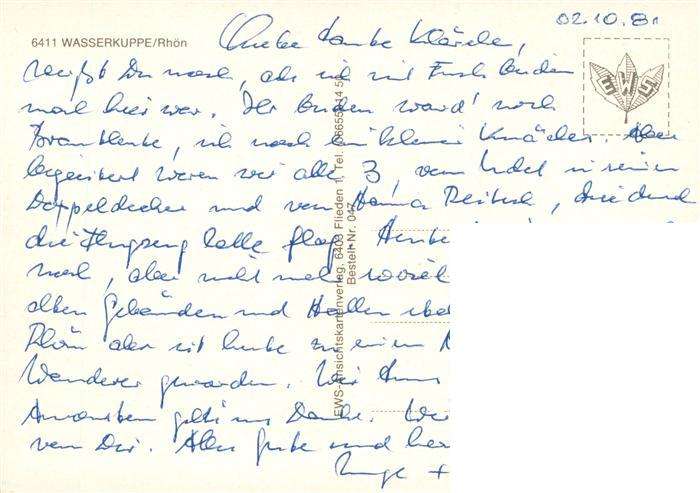 02.10.81
6411 WASSERKUPPE/Rhön
Liebe Tante Klärle,
weißt Du noch, als ich mit Euch beiden
mal hier war. Ihr beiden ward' noch
, ich noch ein kleiner Knäckes. Aber
begeistert waren wir alle 3, vom Udet in seinem
Doppeldecker und von Hanna Reitsch, die durch
die Flugzeughalle flog. Heute
noch, aber nicht mehr soviel
alten Gebäuden und Hallen
Rhön aber ist heute zu einem
Wanderer geworden. Wir
geht's uns Danke. Wir
von Dir. Alles Gute und her
Inge +
EWS-Ansichtskartenverlag, 6403 Flieden 1, Tel. (06655) 14 50
Bestell-Nr. 047
EWS